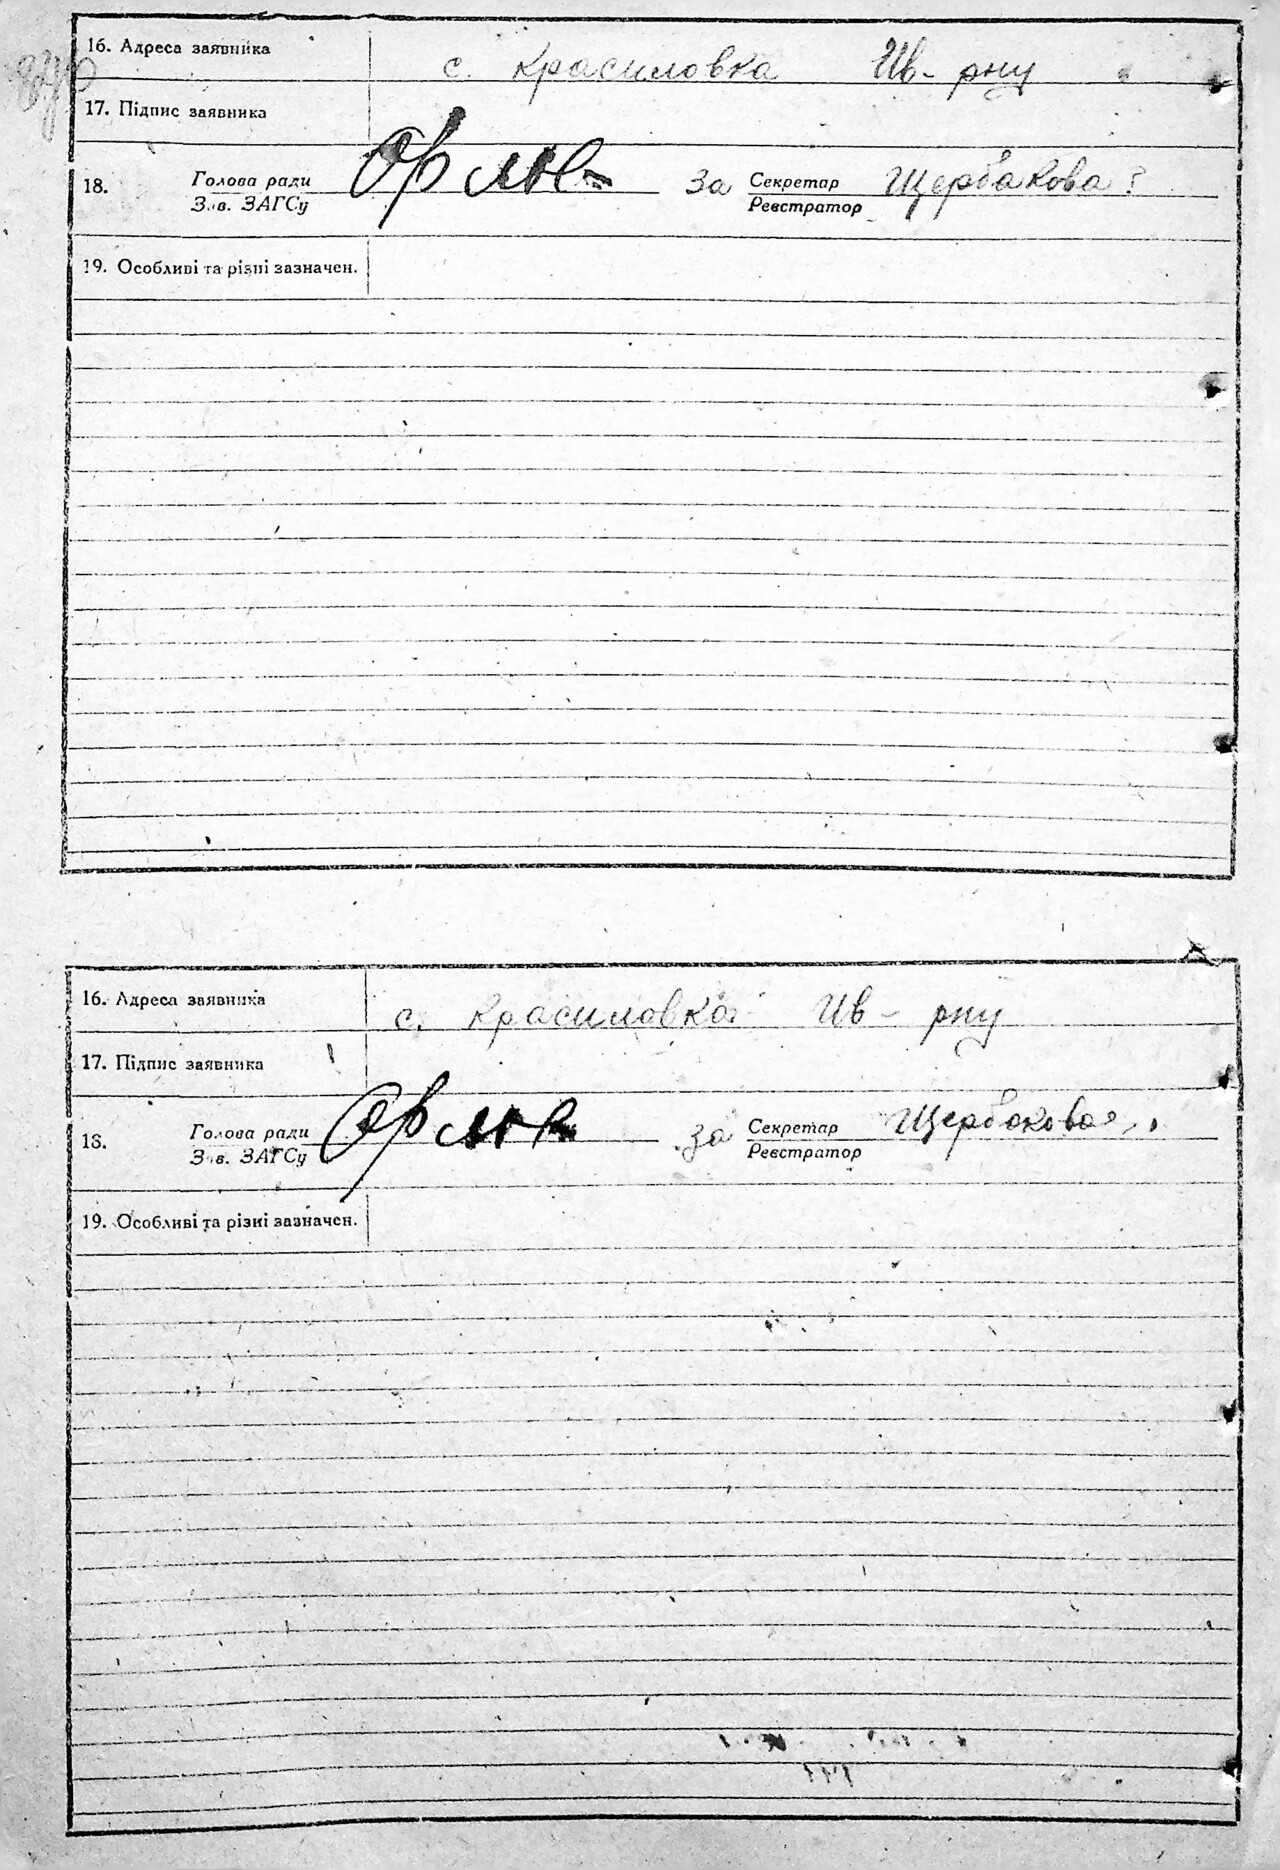 16. Адреса заявника с. Красиловка Ив- рну
17. Підпис заявника
18. Голова ради За Секретар Щербакова
Зав. ЗАГСу Реєстратор
19. Особливі та різні зазначен.
16. Адреса заявника с. Красиловка Ив- рну
17. Підпис заявника
18. Голова ради за Секретар Щербакова
Зав. ЗАГСу Реєстратор
19. Особливі та різні зазначен.